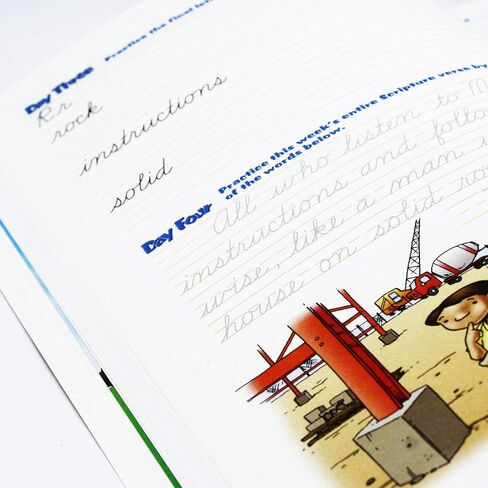 Day Three Practice the final let
Rr
rock
instructions
solid
Day Four Practice this week's entire Scripture verse by
of the words below.
All who listen to M
instructions and follo
wise, like a man
house on solid ro